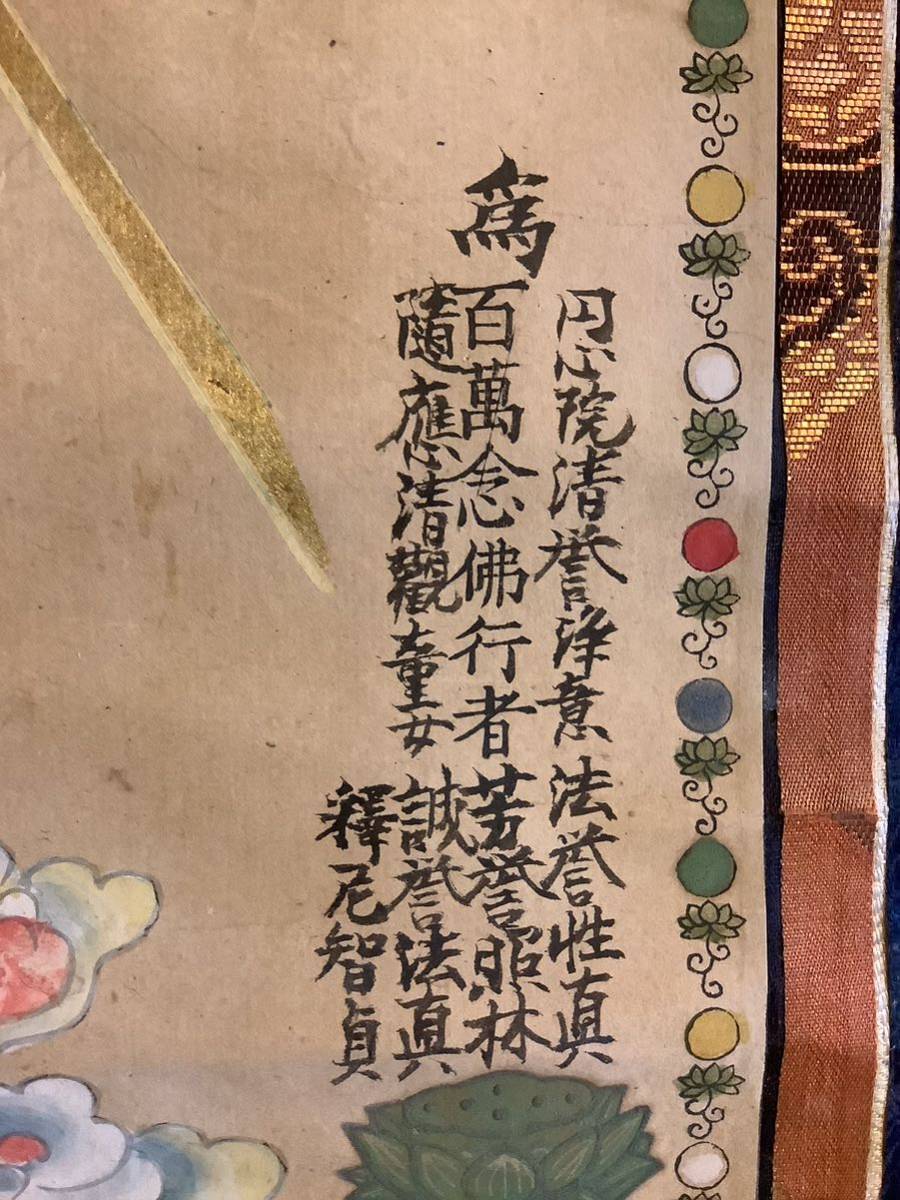 為
円心院清誉浄意
百萬念佛行者
隨應清觀童女
法誉性真
芳譽照林
誠誉法真
釋尼智貞